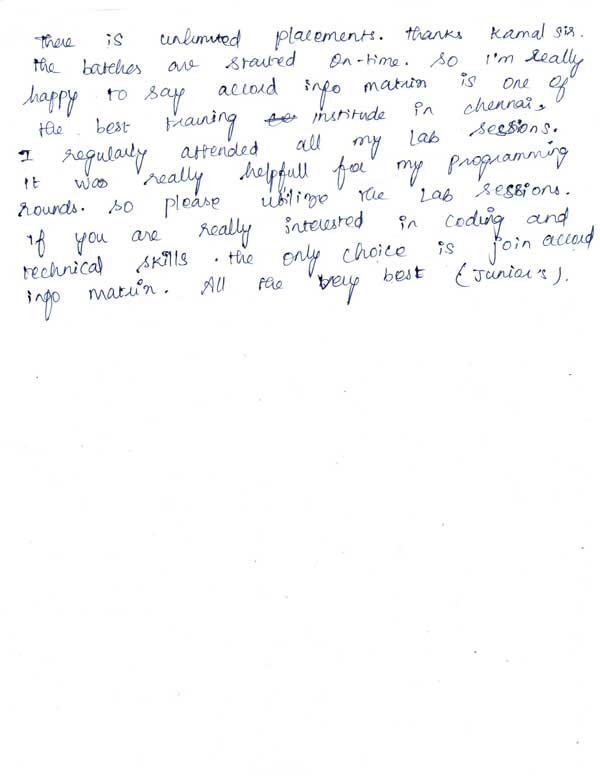 There is unlimited placements. thanks Kamal sir.
the batches are started on-time. so I'm really
happy to say accord info matrix is one of
the best training institude in chennai.
I regularly attended all my Lab sessions.
It was really helpfull for my programming
rounds. so please utilize the Lab sessions.
if you are really interested in coding and
technical skills. the only choice is join accord
info matrix. All the very best (Junior's).